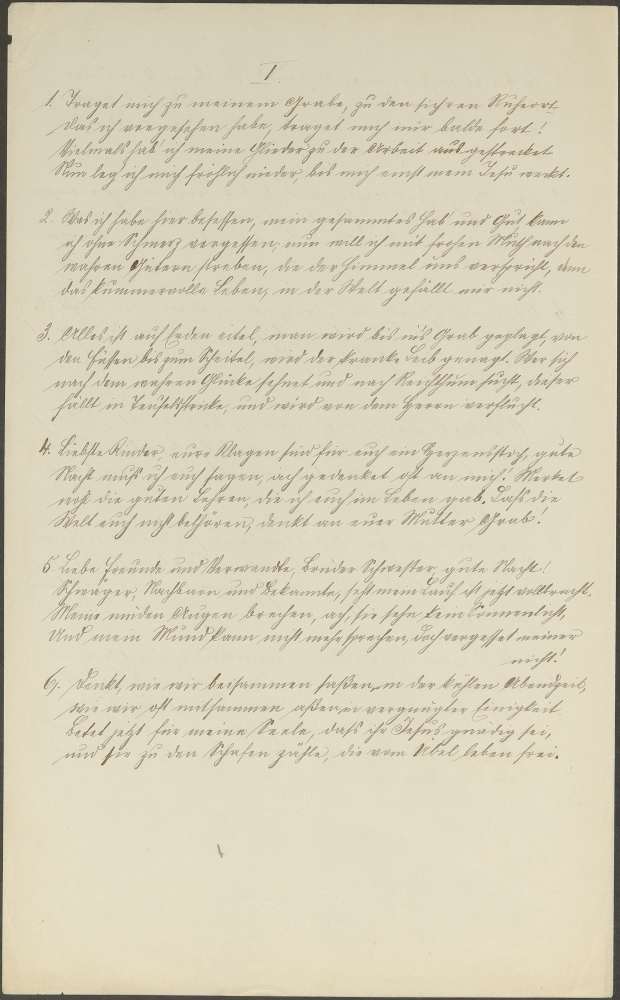 I.
1. Traget mich zu meinem Grabe, zu den sichren Ruheort
das ich vorgesehen habe, traget mich nur balde fort!
Vielmals hab' ich meine Glieder zu der Arbeit ausgestrecket
Nun leg ich mich fröhlich nieder, bis mich einst mein Jesu weckt.
2. Was ich habe hier besessen, mein gesammtes Hab' und Gut kann
ich ohne Schmerz vergessen, nun will ich mit frohen Muth nach den
wahren Gütern streben, die der Himmel uns verspricht, denn
das kummervolle Leben, in der Welt gefällt mir nicht.
3. Alles ist auf Erden eitel, man wird bis ins Grab geplagt, von
den Füssen bis zum Scheitel, wird der kranke Leib genagt. Wer sich
nach dem wahren Glücke sehnet und nach Reichthum sucht, dieser
fällt in Teufelsstricke, und wird von dem Herrn verflucht.
4. Liebste Kinder, eure Klagen sind für euch ein Herzensstich, gute
Nacht muß ich euch sagen, ach gedenket oft an mich! Merket
die guten Lehren, die ich euch im Leben gab. Laß die
Welt euch nicht bethören, denkt an euer Mutter Grab!
5 Liebe Freunde und Verwandte, Brüder Schwester, gute Nacht!
Schwager, Nachbarn und Bekannte, seht mein Lauf ist jetzt vollbracht.
Meine müden Augen brechen, ach, sie sehn kein Sonnenlicht,
Und mein Mund kann nicht mehr sprechen, doch vergesset meiner
nicht!
6. Denkt, wie wir beisammen saßen, in der kühlen Abendzeit,
wie wir oft mitsammen aßen, in vergnügter Einigkeit
Betet jetzt für meine Seele, daß ihr Jesus gnädig sei,
und sie zu den Schafen zähle, die vom Übel leben frei.